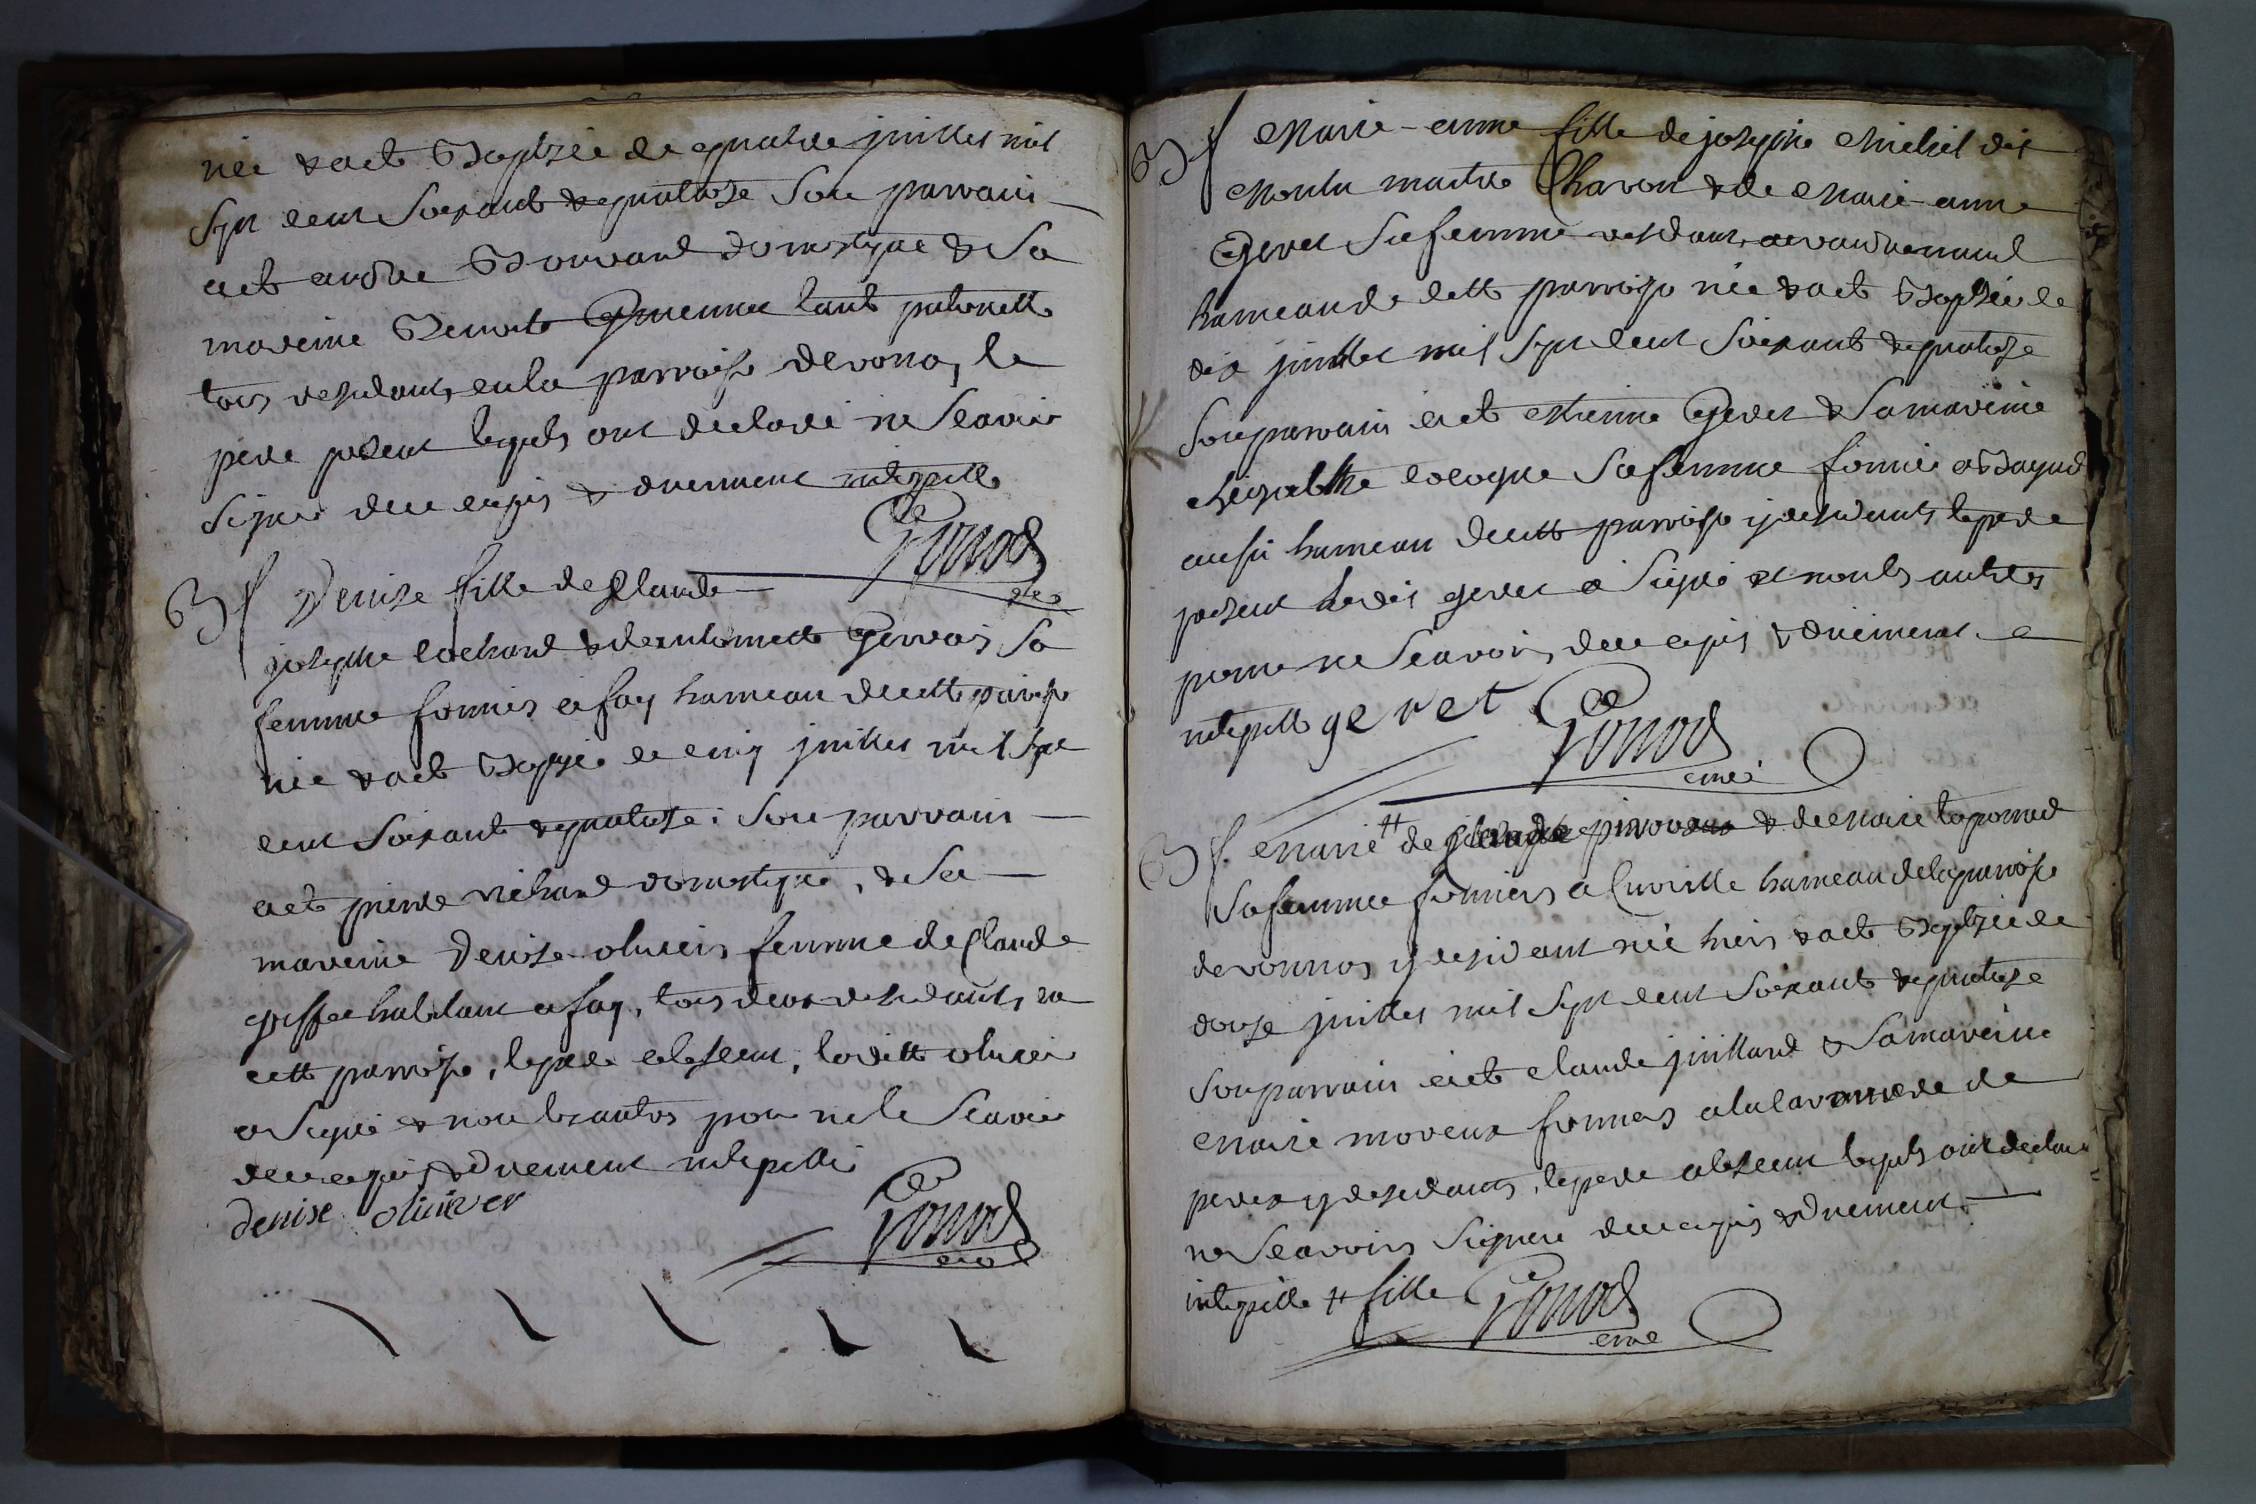 née & a été Baptizée le quatre juillet mil
sept cent soixante & quatorze son parrain
a été andre Bouvard domestique & sa
mareine Benoite Guennet tant
tous residants en la parroisse de vonas, le
pere present lequels ont declaré ne scavoir
signer de ce enquis & duement interpellé
Gonod
curé
B f Denise fille de Claude
josephe cochard & de antoinette Gervais sa
femme fermiers a fay hameau de cette paroisse
née & a été Baptizée le cinq juillet mil sept
cent soixante & quatorze. son parrain
a été pierre richard domestique, & sa
mareine Denise olivier femme de Claude
habitant a fay, tous deux residants en
cette parroisse, le pere absent, ladite olivier
a signé & non les autres pour ne le scavoir
de ce enquis & duement interpellé
denise oliviever
Gonod
curé
B f Marie-anne fille de josephe Michel dit
Moulu maitre Charon & de Marie-anne
Geret sa femme residants a
hameau de cette parroisse née & a été Baptizée le
dix juillet mil sept cent soixante & quatorze
son parrain a été etienne Geret & sa mareine
cologne sa femme fermier a
aussi hameau de cette parroisse y residants le pere
present ledit geret a signé et non les autres
pour ne scavoir, de ce enquis & duement
interpellé geret
Gonod
curé
B f. Marie # de Claude & de Marie
sa femme fermiers a Luville hameau de la parroisse
de vonnas y residant née hier & a été Baptizée le
douze juillet mil sept cent soixante & quatorze
son parrain a été claude juillard & sa mareine
Marie moreux fermiers a la de
y residants, le pere absent lequels ont declaré
ne scavoir signer de ce enquis & duement
interpellé # fille
Gonod
curé